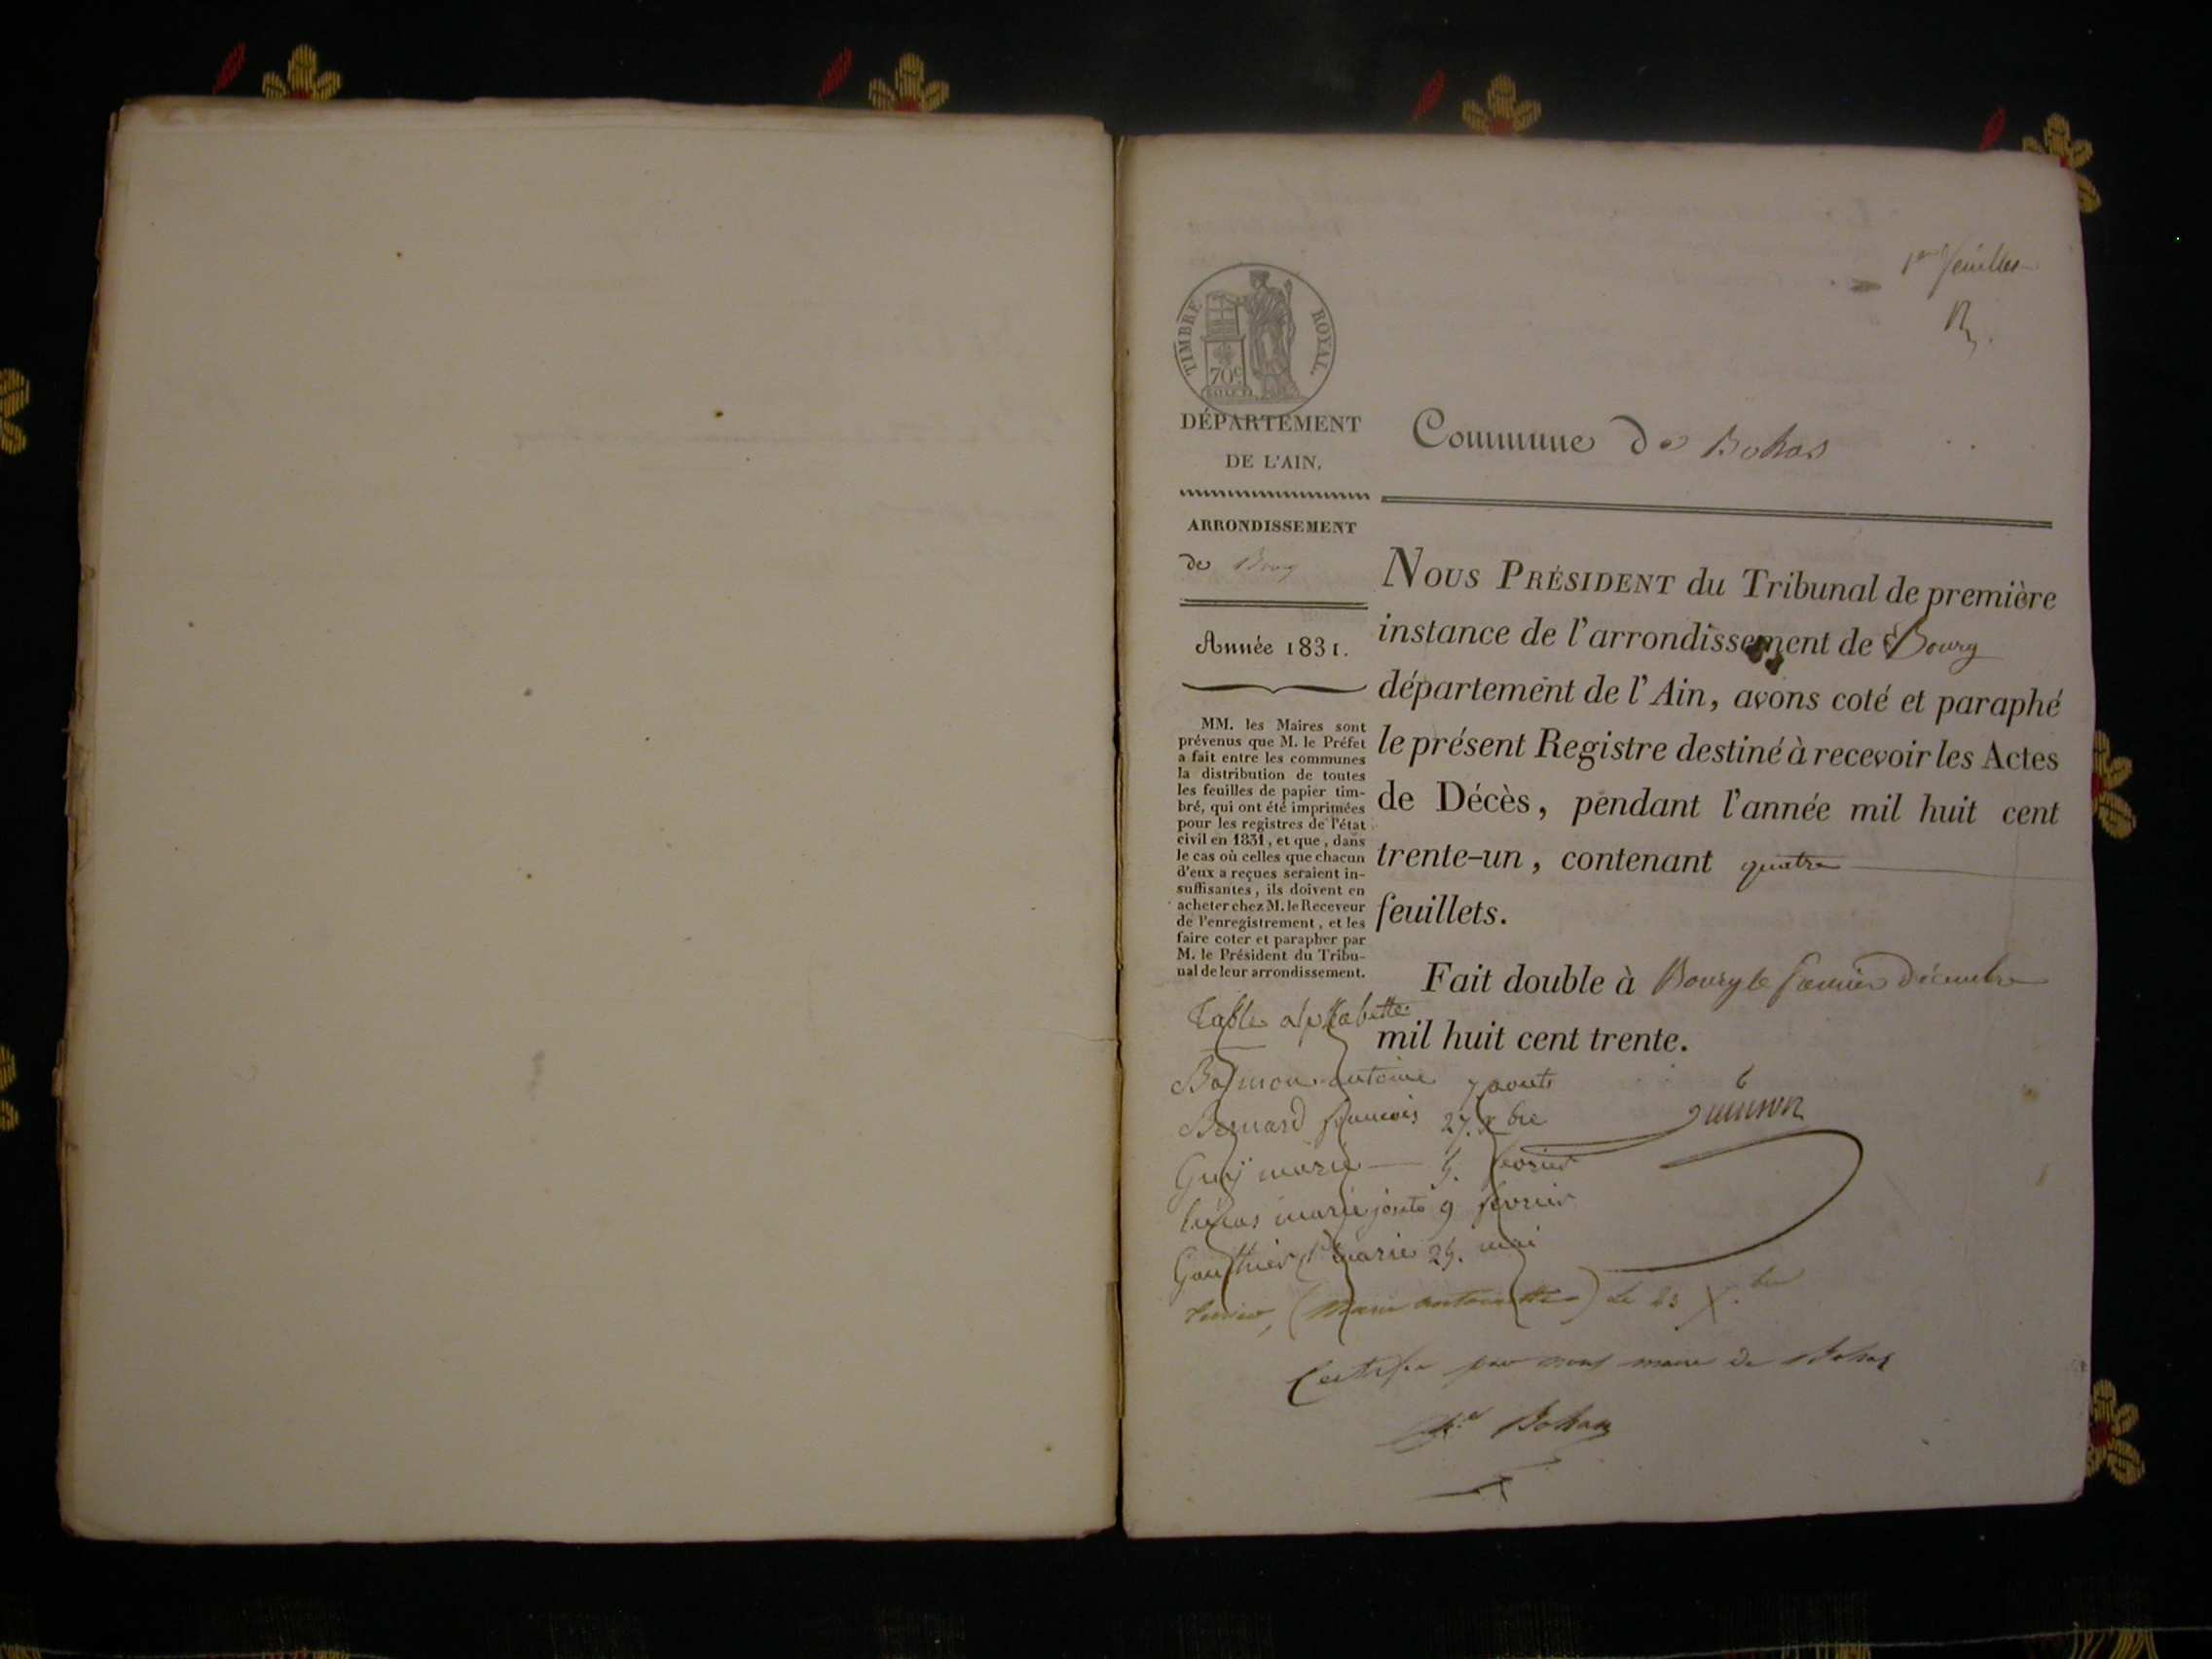 1er feuillet
TIMBRE ROYAL.
70c
DÉPARTEMENT
DE L'AIN.
Commune de Bohas
ARRONDISSEMENT
de Bourg
Année 1831.
MM. les Maires sont
prévenus que M. le Préfet
a fait entre les communes
la distribution de toutes
les feuilles de papier tim-
bré, qui ont été imprimées
pour les registres de l'état
civil en 1831, et que, dans
le cas où celles que chacun
d'eux a reçues seraient in-
suffisantes, ils doivent en
acheter chez M. le Receveur
de l'enregistrement, et les
faire coter et parapher par
M. le Président du Tribu-
nal de leur arrondissement.
NOUS PRÉSIDENT du Tribunal de première
instance de l'arrondissement de Bourg
département de l'Ain, avons coté et paraphé
le présent Registre destiné à recevoir les Actes
de Décès, pendant l'année mil huit cent
trente-un, contenant quatre
feuillets.
Fait double à Bourg le premier décembre
mil huit cent trente.
Table
antoine 7 aout
Bernard francois 27.
Guy marie fevrier
9 fevrier
Gauthier marie mai
(Marie antoinette) Le 23 X.bre
Certifié par nous maire de Bohas
Bohas